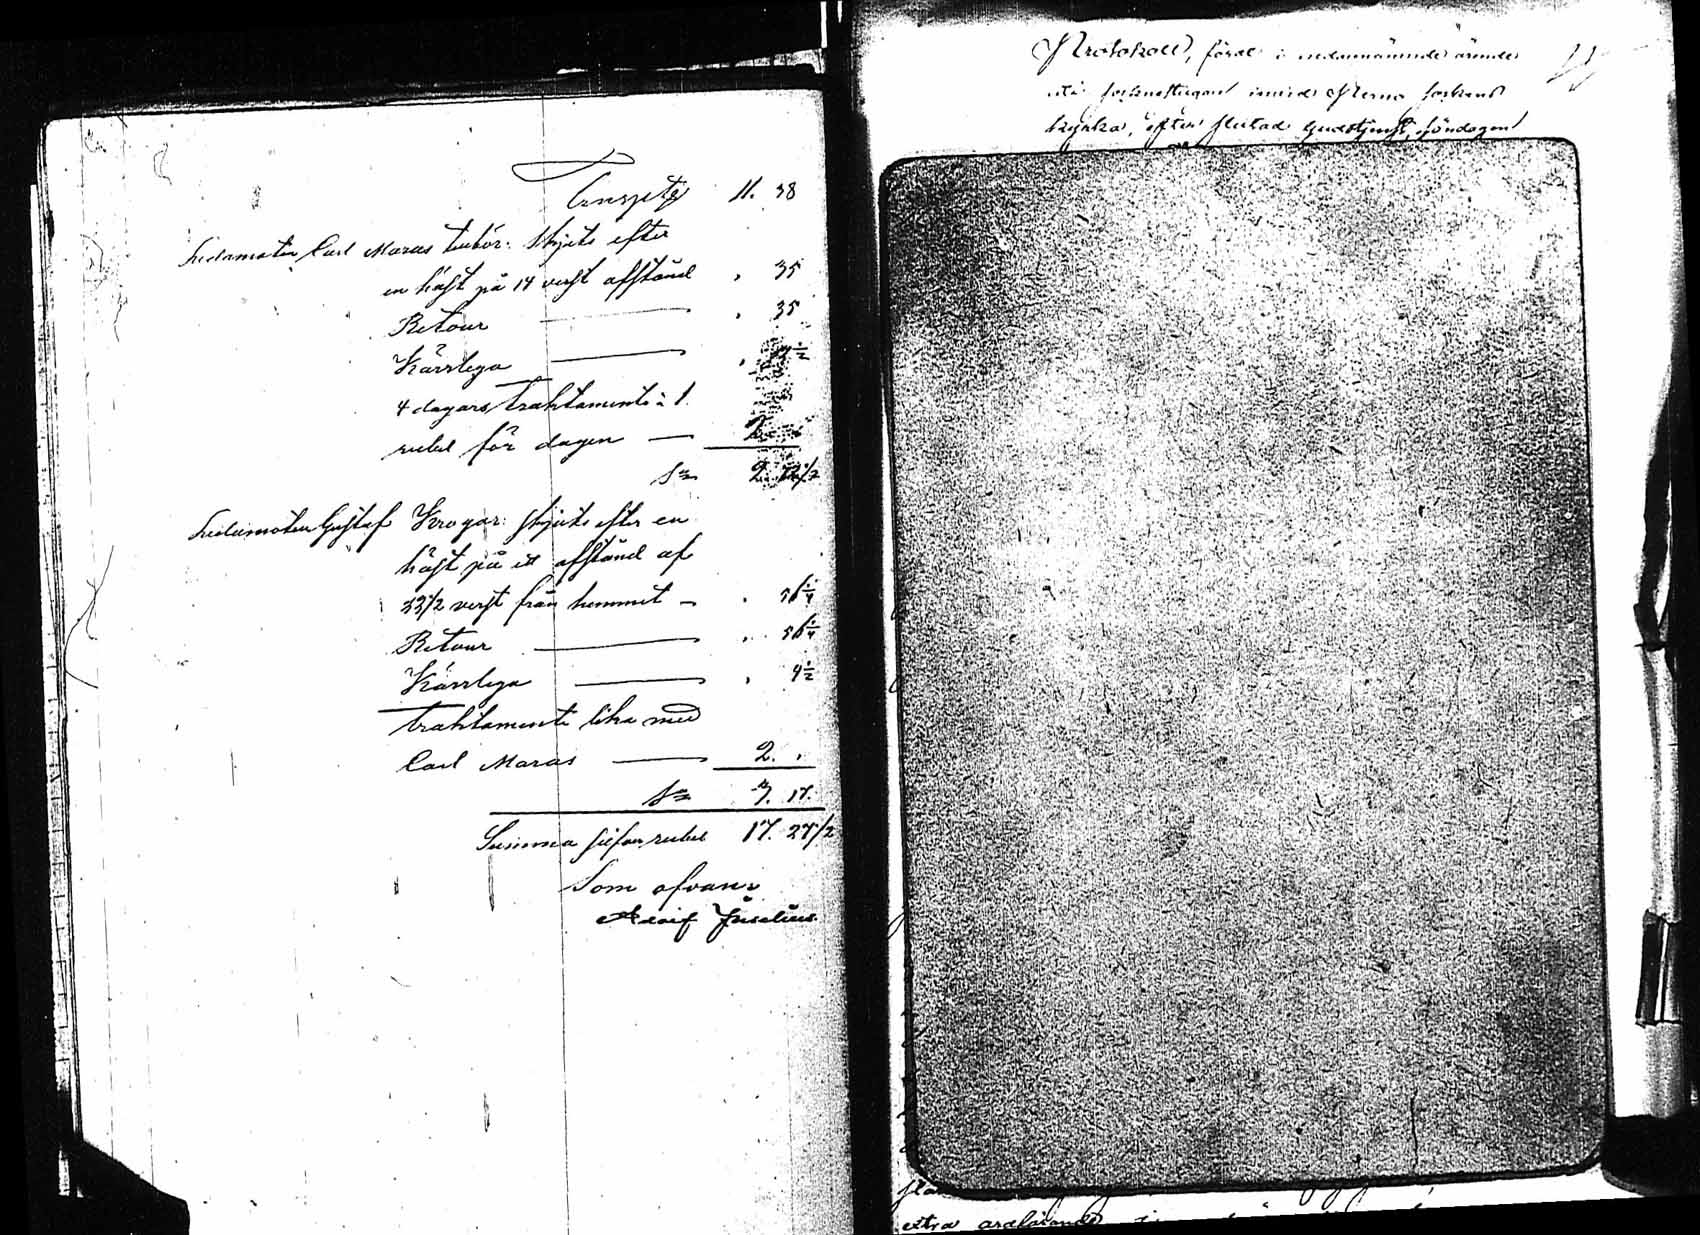 Transport 11. 38
Ledamoten Carl Maras tubör: Skjuts efter
en häst på 14 verst afstånd " 35
Retour " 35
Kärrlega "
4 dagars traktamente à 1
rubel för dagen 2
Sa 2. 72 1/2
Ledamoten Gustaf Krogar: skjuts efter en
häst på ett afstånd af
22 1/2 verst från hemmet " 56 1/4
Retour " 56 1/4
Kärrlega " 4 1/2
traktamente lika med
Carl Maras 2. "
Sa 3. 17.
Summa silfver rubel 17. 27 1/2
Som ofvan:
Adolf
Protokoll, fördt i nedannämnde ärende
uti sockenstugan invid Perno sockens
kyrka, efter slutad Gudstjenst, söndagen
extra ordförande